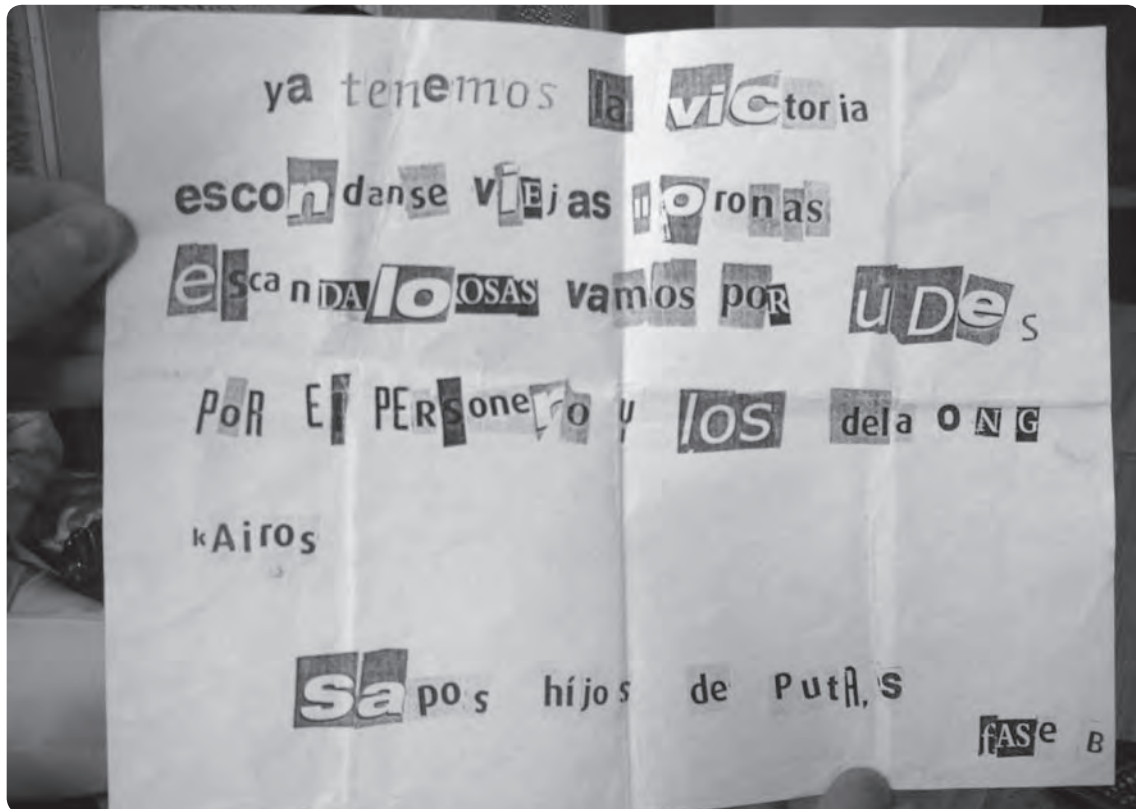 ya tenemos la vICtoria
escondanse vìEjas lloronas
escanDAloOSAS vamos poR uDes
PoR El PERsonero y los dela ONG
kAiros
Sapos híjos de PutA,s
fASe B